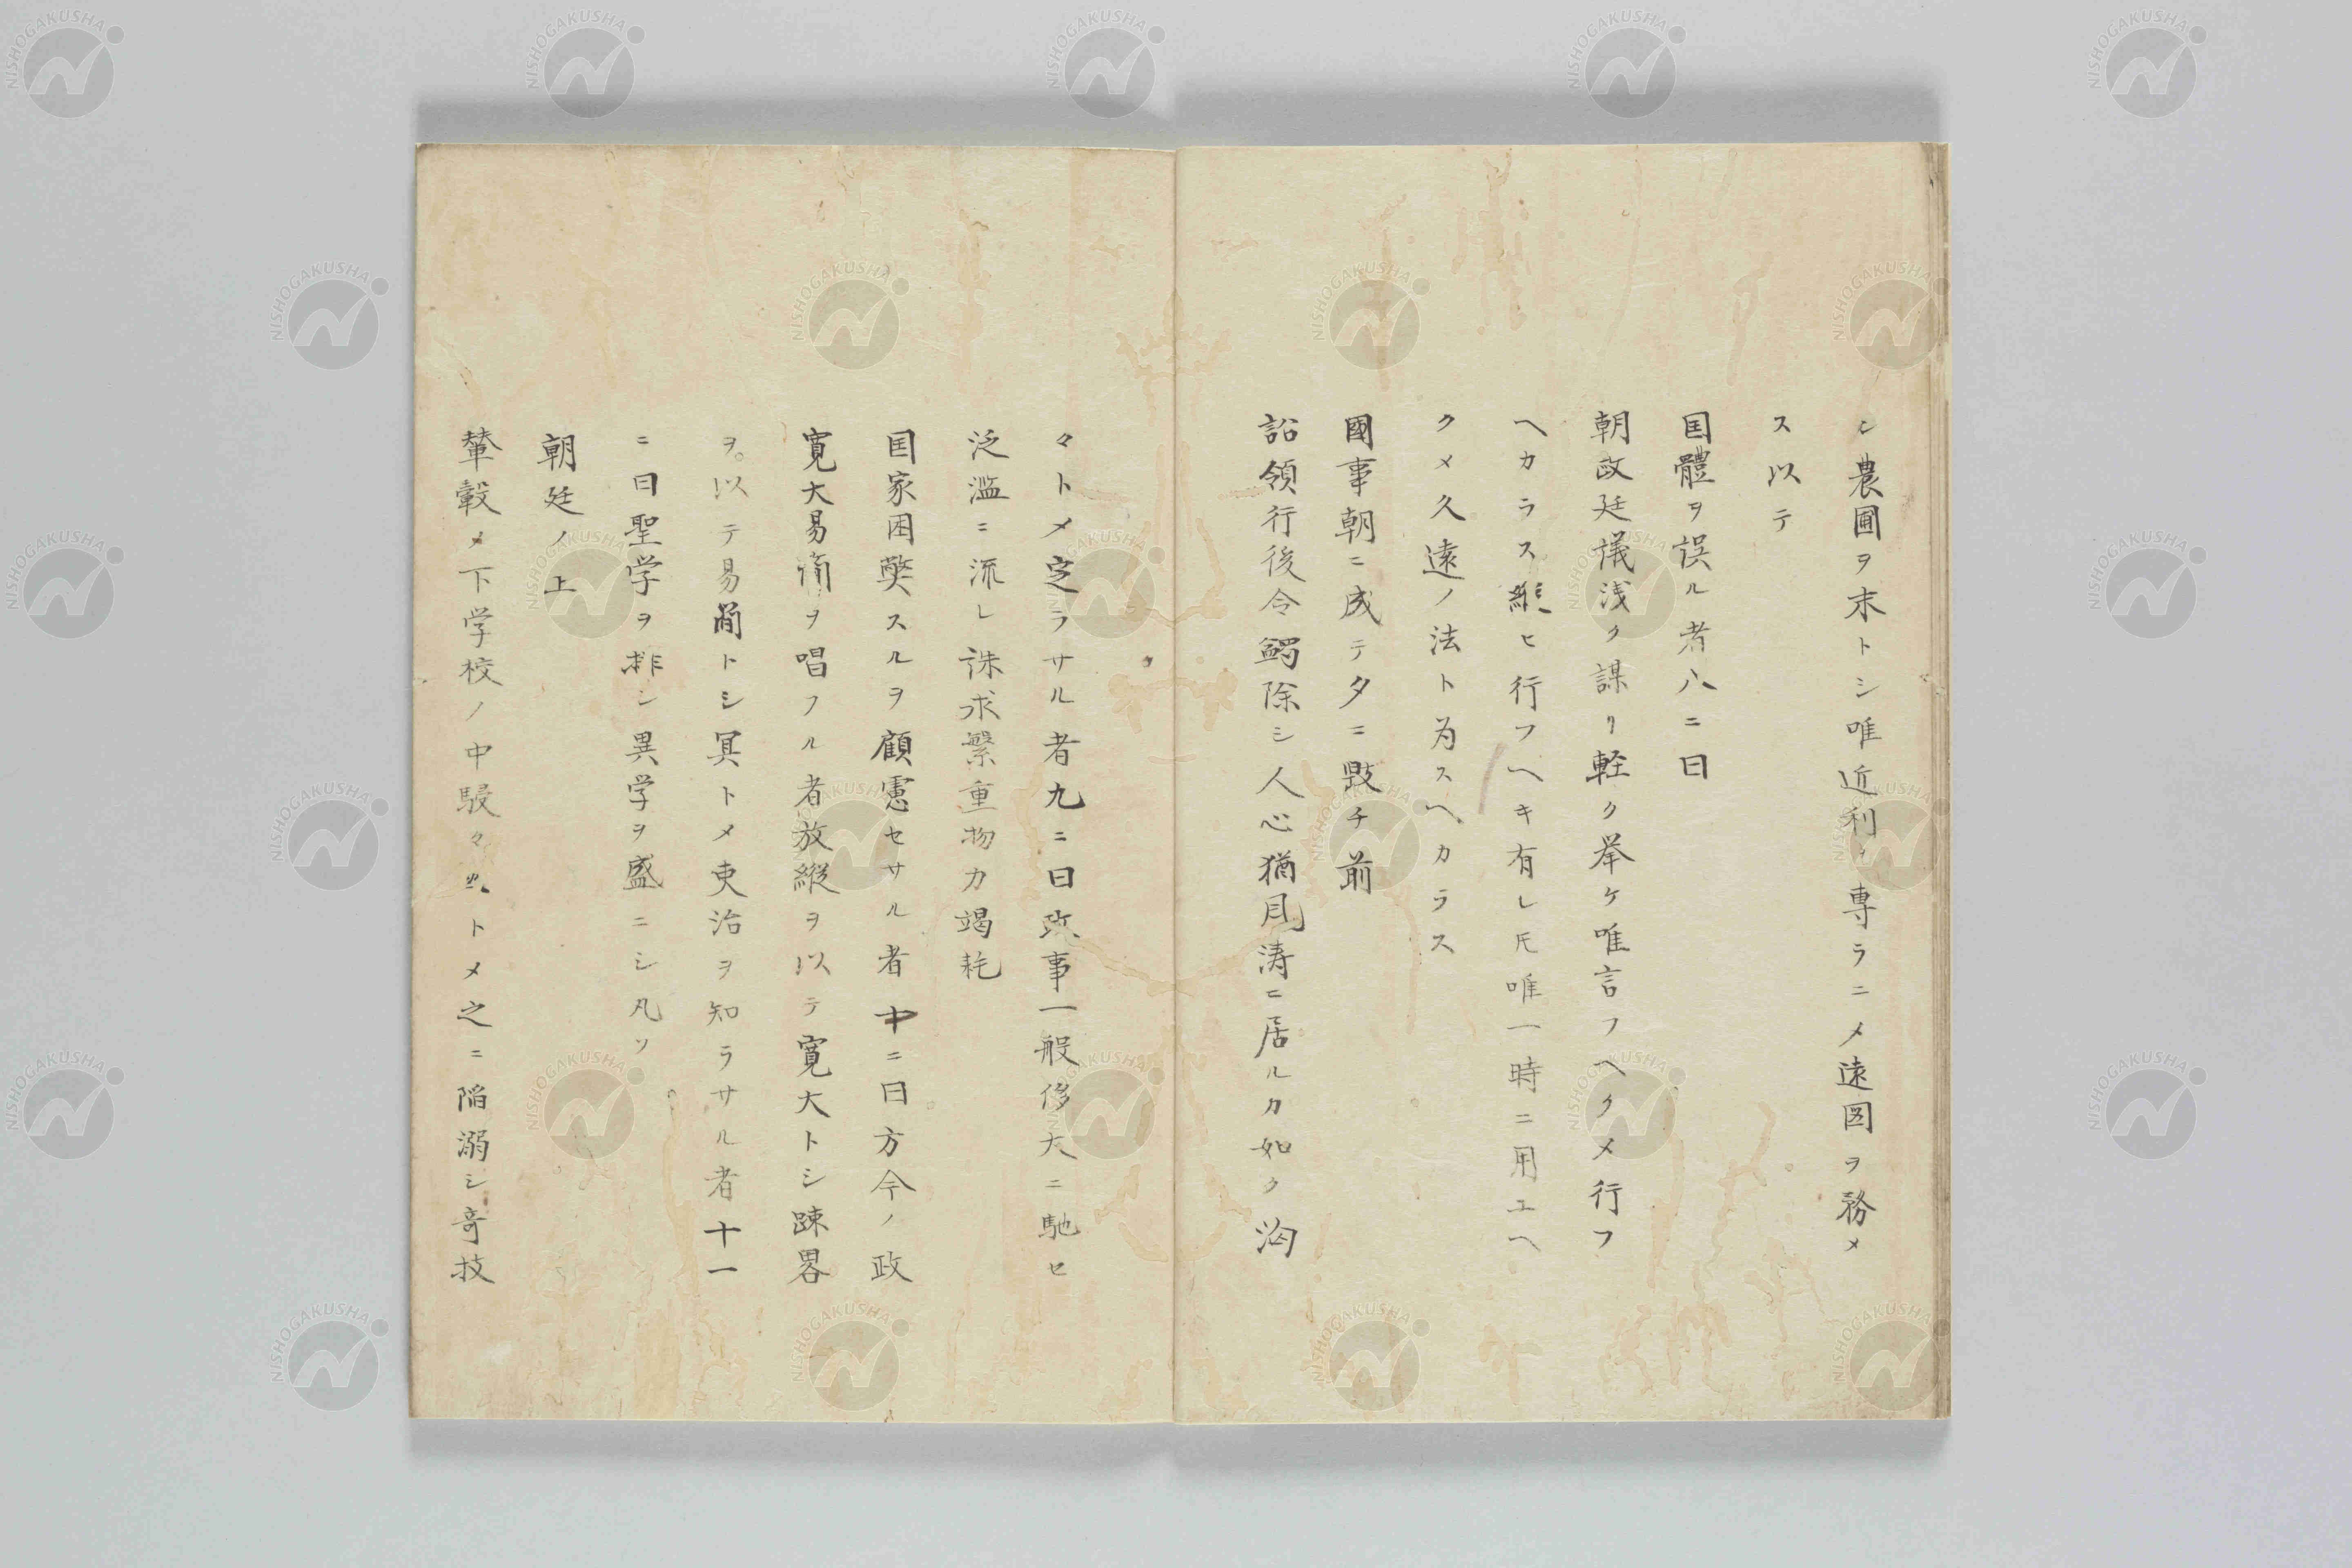 シ農圃ヲ末トシ唯近利ヲ専ラニメ遠図ヲ務メ
ス以テ
国體ヲ誤ル者八ニ曰
朝政廷議浅ク謀リ軽ク挙ケ唯言フヘクメ行フ
ヘカラス縦ヒ行フヘキ有レ𪜈唯一時ニ用エヘ
クメ久遠ノ法ト為スヘカラス
國事朝ニ成テタニ毀チ前
詔領行後令蠲除シ人心猶風涛ニ居ルカ如ク洶
々トメ定ラサル者九ニ曰政事一般侈大ニ馳セ
泛濫ニ流レ誅求繁重物力竭耗
国家困弊スルヲ顧慮セサル者十ニ曰方今ノ政
寛大易簡ヲ唱フル者放縦ヲ以テ寛大トシ踈畧
ヲ以テ易簡トシ冥トメ吏治ヲ知ラサル者十一
ニ曰聖学ヲ排シ異学ヲ盛ニシ凡ソ
朝廷ノ上
輦轂メ下学校ノ中駸々乎トメ之ニ陥溺シ奇技
NISHOGAKUSHA